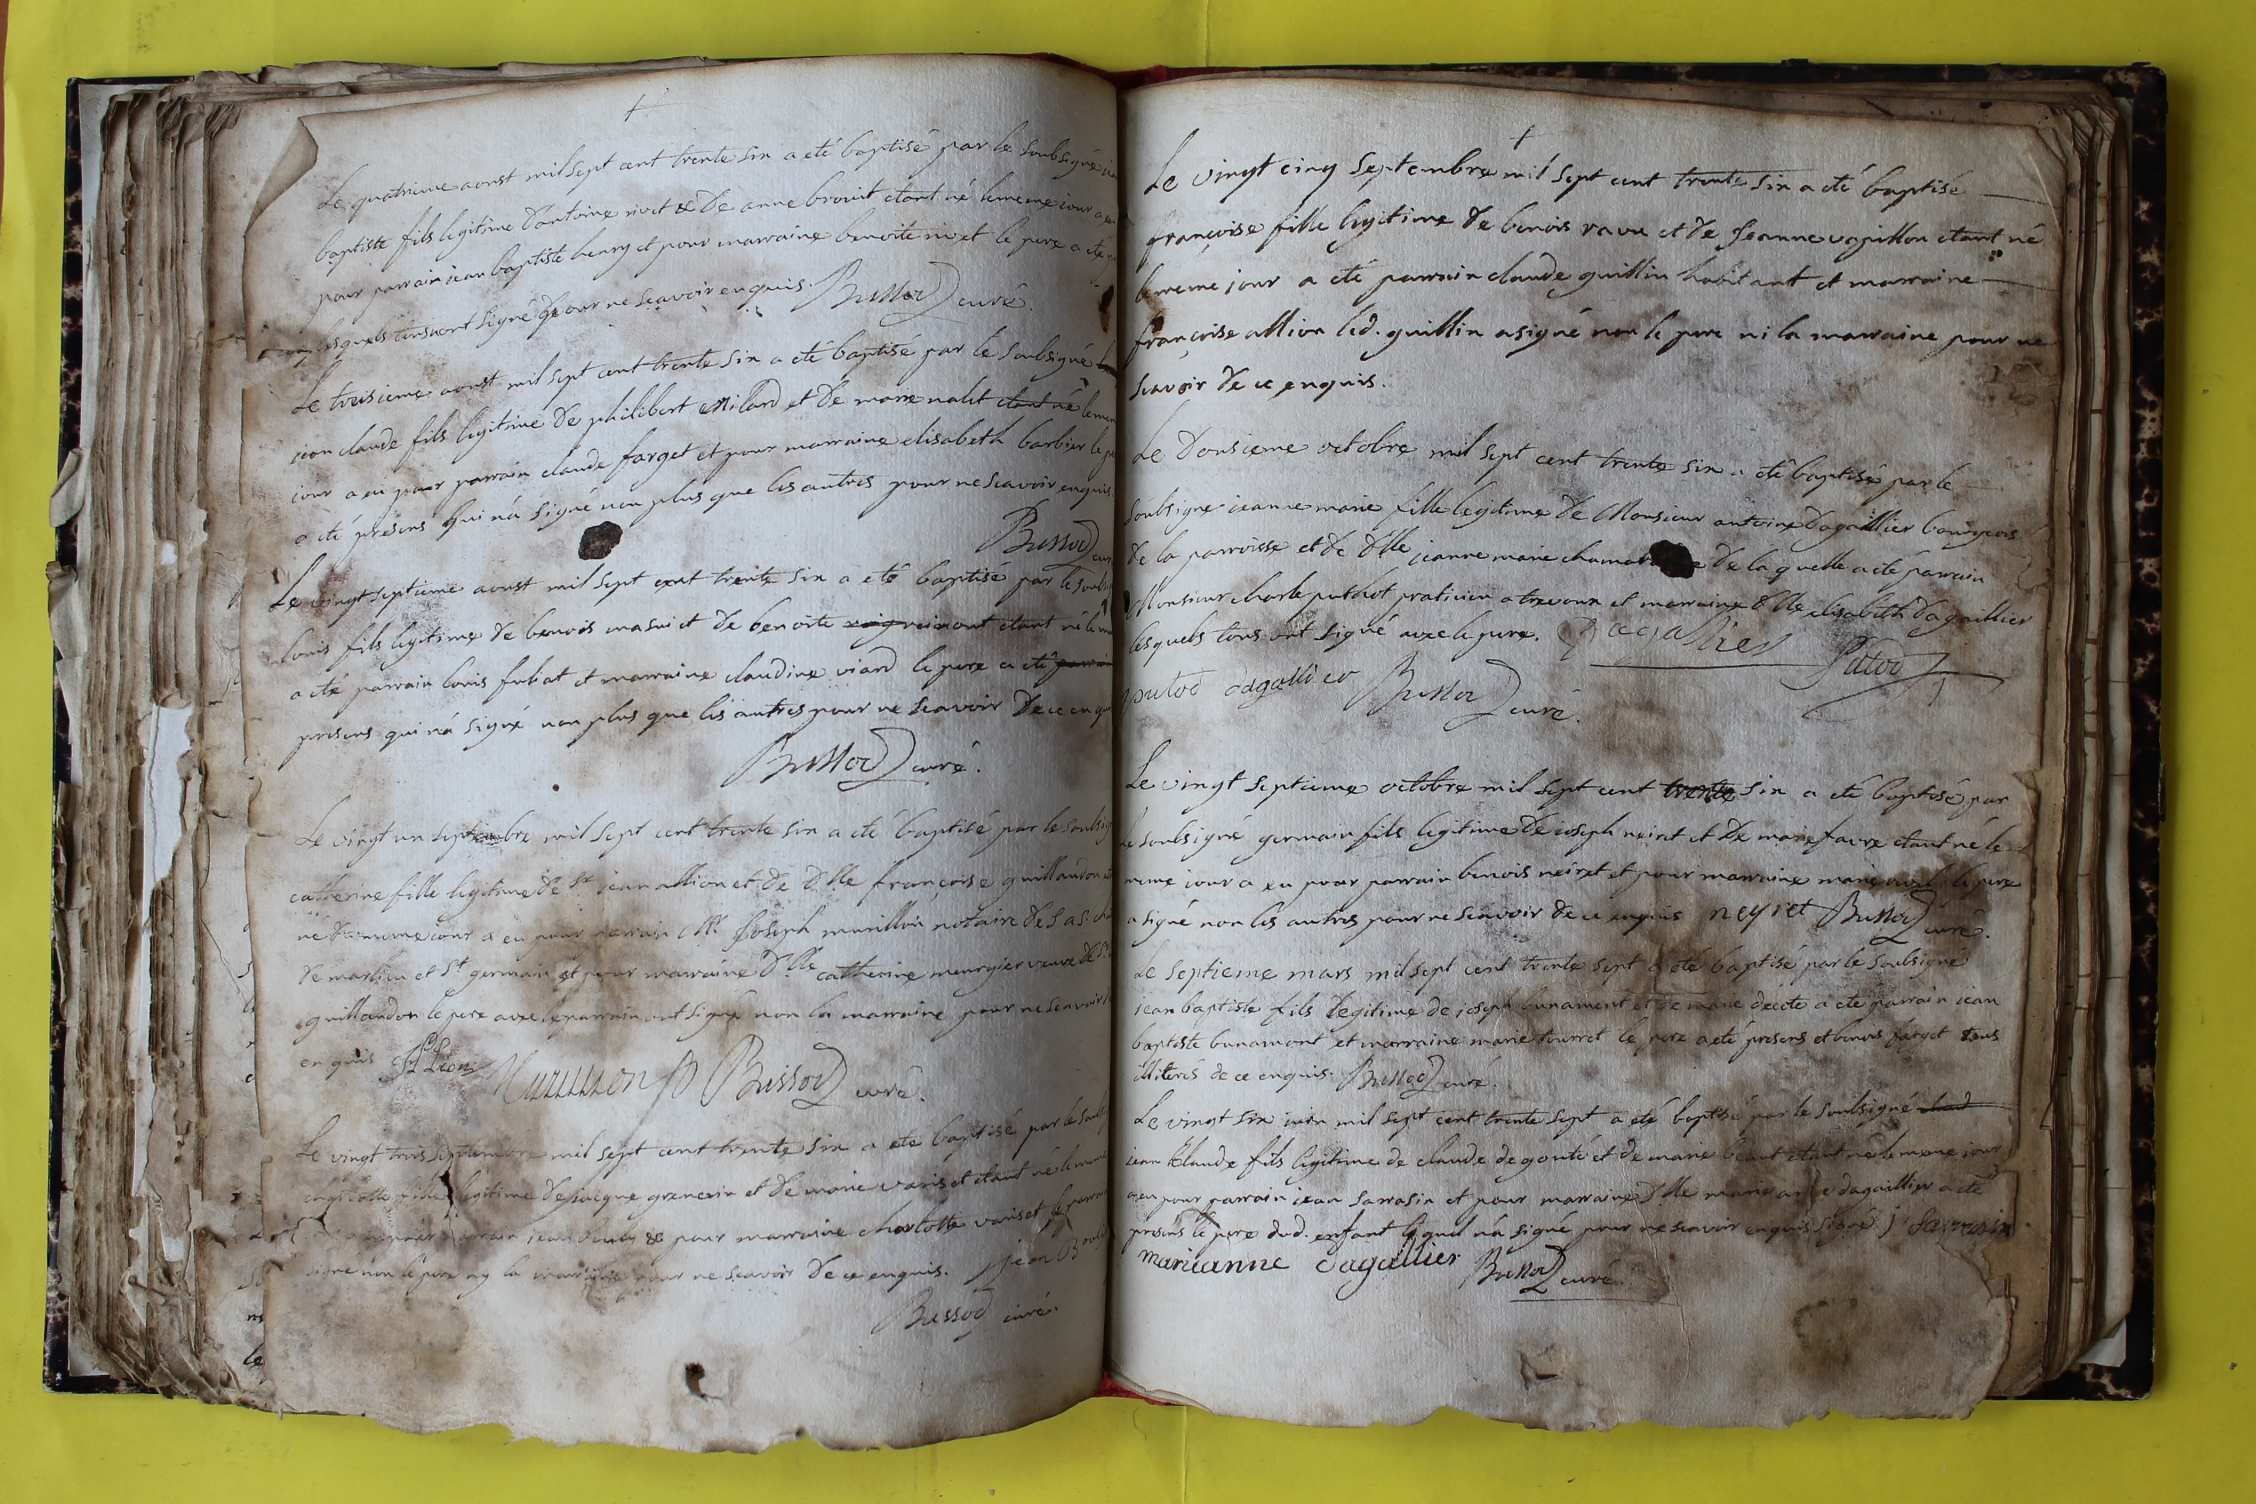 Le quatrieme aoust mil sept cent trente six a eté baptisé par le soubsigné
baptiste fils legitime d'antoine rivet & de anne brouit etant né le meme jour a
pour parrain jean baptiste henry et pour marraine benoite rivet le pere a eté
lesquels signé pour ne scavoir enquis. Bussod curé.
Le troisieme aoust mil sept cent trente six a eté baptisé par le soubsigné
jean claude fils legitime de philibert milard et de marie nalet etant né le
jour a eu pour parrain claude farget et pour marraine elisabeth barbier le
a eté présens qui n'a signé non plus que les autres pour ne scavoir enquis.
Bussod
Le vingt septieme aoust mil sept cent trente six a eté baptisé par le
louis fils legitime de benois masuit et de benoite etant né le
a eté parrain louis fubat et marraine claudine viard le pere a eté
presens qui n'a signé non plus que les autres pour ne scavoir de ce
Bussod curé.
Le vingt un septembre mil sept cent trente six a eté baptisé par le
catherine fille legitime de Sr jean allion et de dlle françoise guillaudon
né le meme jour a eu pour parrain Mr joseph murillon notaire de
de marlieu et St germain et pour marraine dlle catherine meurgier veuve de
guillaudon le pere avec le parrain ont signé non la marraine pour ne scavoir
enquis Allion Murillon Bussod curé.
Le vingt trois septembre mil sept cent trente six a eté baptisé par le
fille legitime de jacque grenerin et de marie variset etant né le
parrain jean & pour marraine charlotte variset le
signé non le pere ny la marraine pour ne scavoir de ce enquis. jean
Bussod curé.
Le vingt cinq septembre mil sept cent trente six a eté baptisé
françoise fille legitime de benois ravu et de jeanne vapillon etant né
le meme jour a eté parrain claude guillin habitant et marraine
françoise allion led. guillin a signé non le pere ni la marraine pour ne
scavoir de ce enquis.
Le donsieme octobre mil sept cent trente six a eté baptisé par le
soubsigné jeanne marie fille legitime de Monsieur antoine dagallier bourgeois
de la parroisse et de dlle jeanne marie de la quelle a eté parrain
Monsieur charle puthot praticien a trevoux et marraine dlle elisabeth dagaillier
lesquels tous ont signé avec le pere. Dagallier Putod
putod dagallier Bussod curé.
Le vingt septieme octobre mil sept cent trente six a eté baptisé par
le soubsigné germain fils legitime de joseph neiret et de marie favre etant né le
meme jour a eu pour parrain benois neiret et pour marraine marie le pere
a signé non les autres pour ne scavoir de ce enquis neyret Bussod curé.
Le septieme mars mil sept cent trente sept a eté baptisé par le soubsigné
jean baptiste fils legitime de joseph bunament et de marie decote a eté parrain jean
baptiste bunament et marraine marie tourret le pere a eté présens et benois farget tous
illiterés de ce enquis. Bussod curé.
Le vingt six juin mil sept cent trente sept a eté baptisé par le soubsigné
jean klaude fils legitime de claude degouté et de marie etant né le meme jour
a eu pour parrain jean sarrasin et pour marraine dlle marie anne dagaillier a eté
présens le pere dud. enfant lequel n'a signé pour ne scavoir enquis signé j sarrasin
marieanne dagallier Bussod curé.